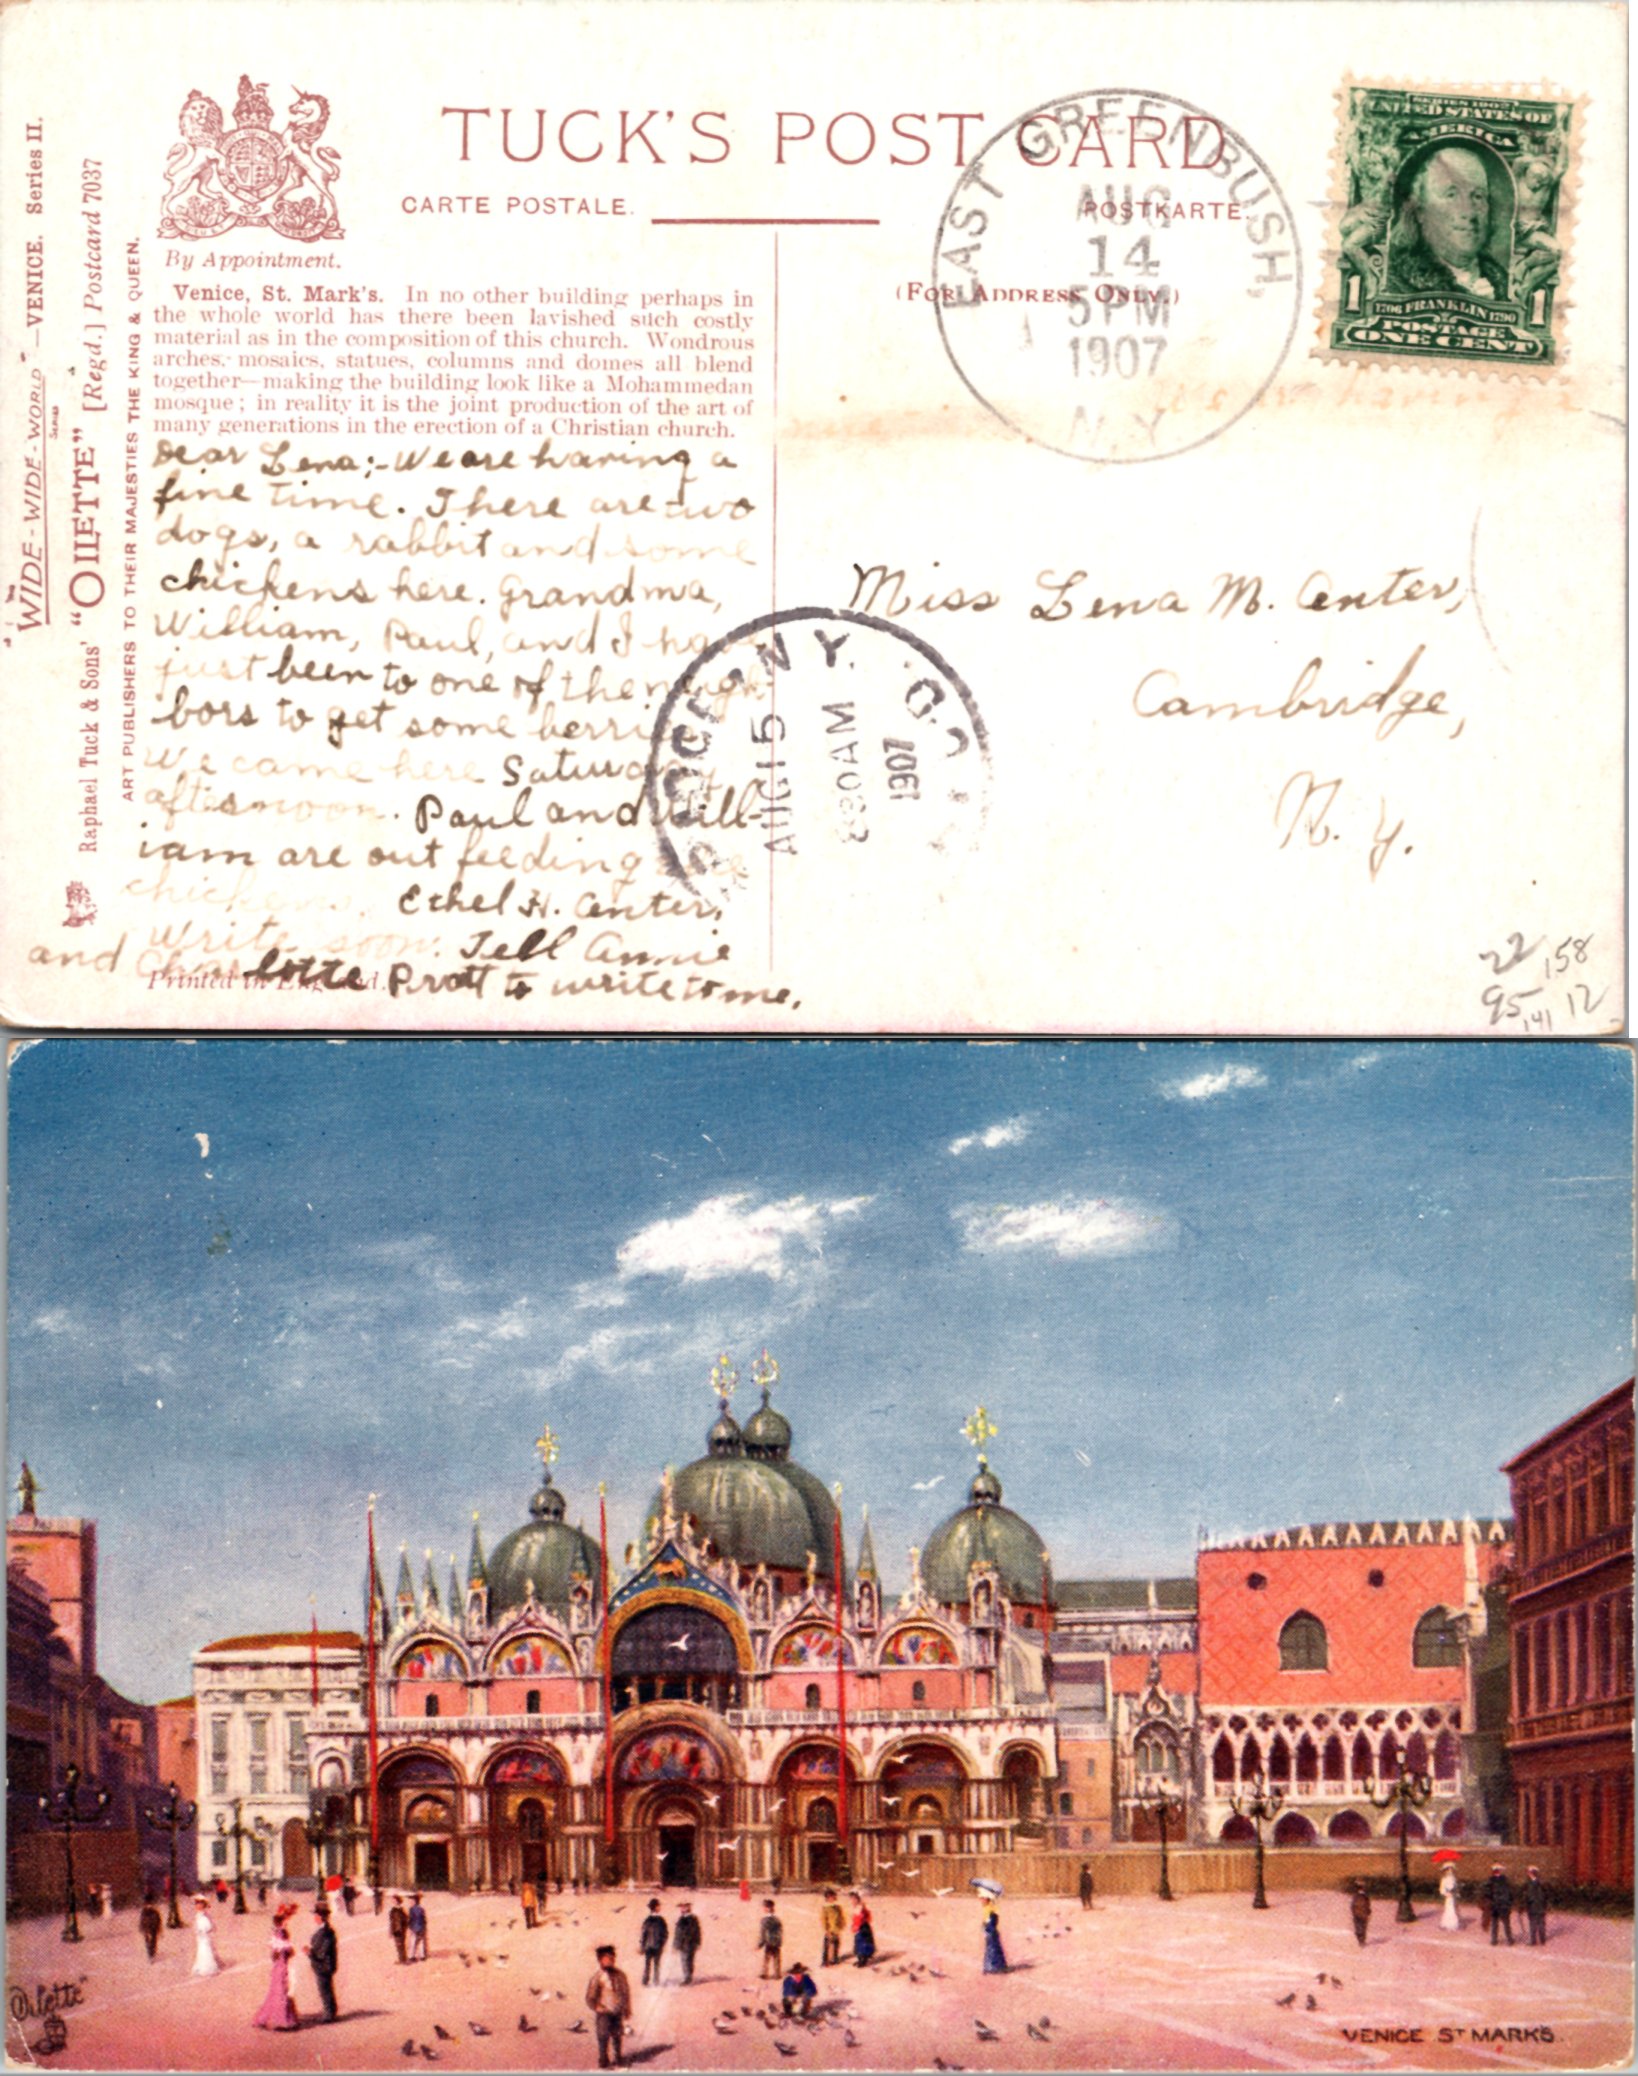 TUCK'S POST CARD
CARTE POSTALE.
POSTKARTE.
(FOR ADDRESS ONLY.)
By Appointment.
"WIDE-WIDE-WORLD"—VENICE. Series II.
SERIES
Raphael Tuck & Sons' "OILETTE" [Regd.] Postcard 7037
ART PUBLISHERS TO THEIR MAJESTIES THE KING & QUEEN.
Venice, St. Mark's. In no other building perhaps in
the whole world has there been lavished such costly
material as in the composition of this church. Wondrous
arches, mosaics, statues, columns and domes all blend
together—making the building look like a Mohammedan
mosque; in reality it is the joint production of the art of
many generations in the erection of a Christian church.
Dear Lena:- We are having a
fine time. There are two
dogs, a rabbit and some
chickens here. Grandma,
William, Paul, and I have
just been to one of the neigh
bors to get some berries
We came here Saturday
afternoon. Paul and Will-
iam are out feeding the
chickens. Ethel H. Center,
Write soon. Tell Annie
and Charlotte Pratt to write to me.
Printed in England.
EAST GREENBUSH,
AUG
14
5PM
1907
N.Y.
SERIES 1902
UNITED STATES OF
AMERICA
1 1706 FRANKLIN 1790 1
POSTAGE
ONE CENT
N.Y.
AUG 15
830AM
1907
Miss Lena M. Center,
Cambridge,
N. Y.
22,158
95,141 12
"Oilette"
VENICE ST MARK'S.